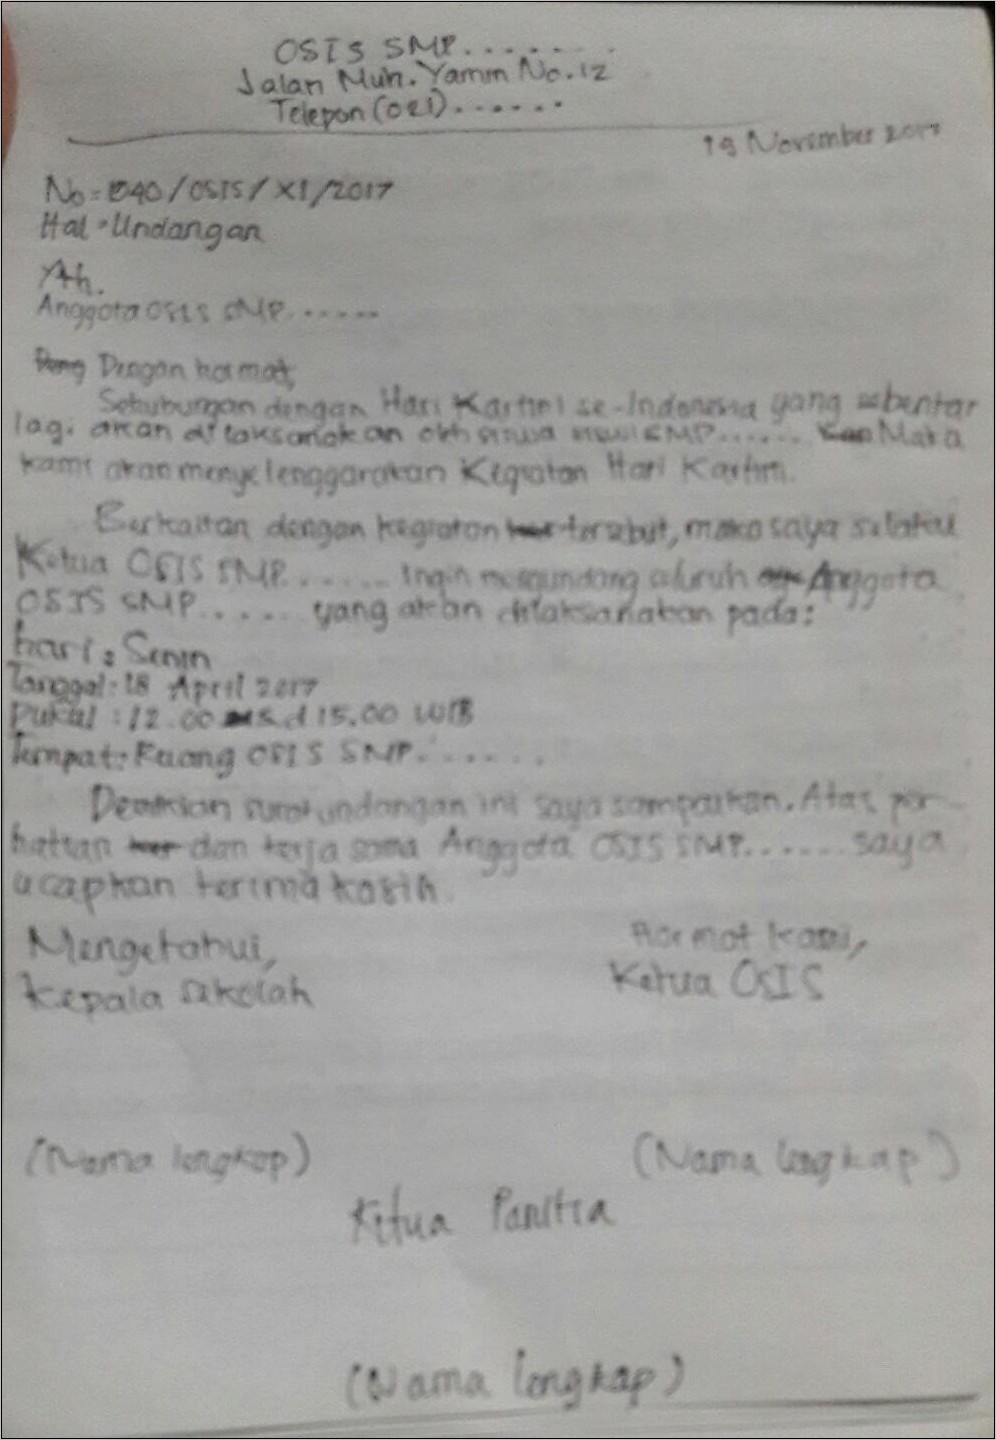 OSIS SMP.......
Jalan Muh. Yamin No. 12
Telepon (021)......
19 November 2017
No = 040/OSIS/XI/2017
Hal = Undangan
Yth.
Anggota OSIS SMP......
Dengan hormat,
Sehubungan dengan Hari Kartini se-Indonesia yang sebentar
lagi akan dilaksanakan oleh siswa siswi SMP....... Maka
kami akan menyelenggarakan Kegiatan Hari Kartini.
Berkaitan dengan kegiatan tersebut, maka saya selaku
Ketua OSIS SMP....... Ingin mengundang seluruh Anggota
OSIS SMP...... yang akan dilaksanakan pada:
hari : Senin
Tanggal : 18 April 2017
Pukul : 12.00 s.d 15.00 WIB
Tempat : Ruang OSIS SMP.......
Demikian surat undangan ini saya sampaikan. Atas per-
hatian dan kerja sama Anggota OSIS SMP....... saya
ucapkan terima kasih.
Mengetahui,
Hormat kami,
Kepala sekolah
Ketua OSIS
(Nama lengkap)
(Nama lengkap)
Ketua Panitia
(Nama lengkap)